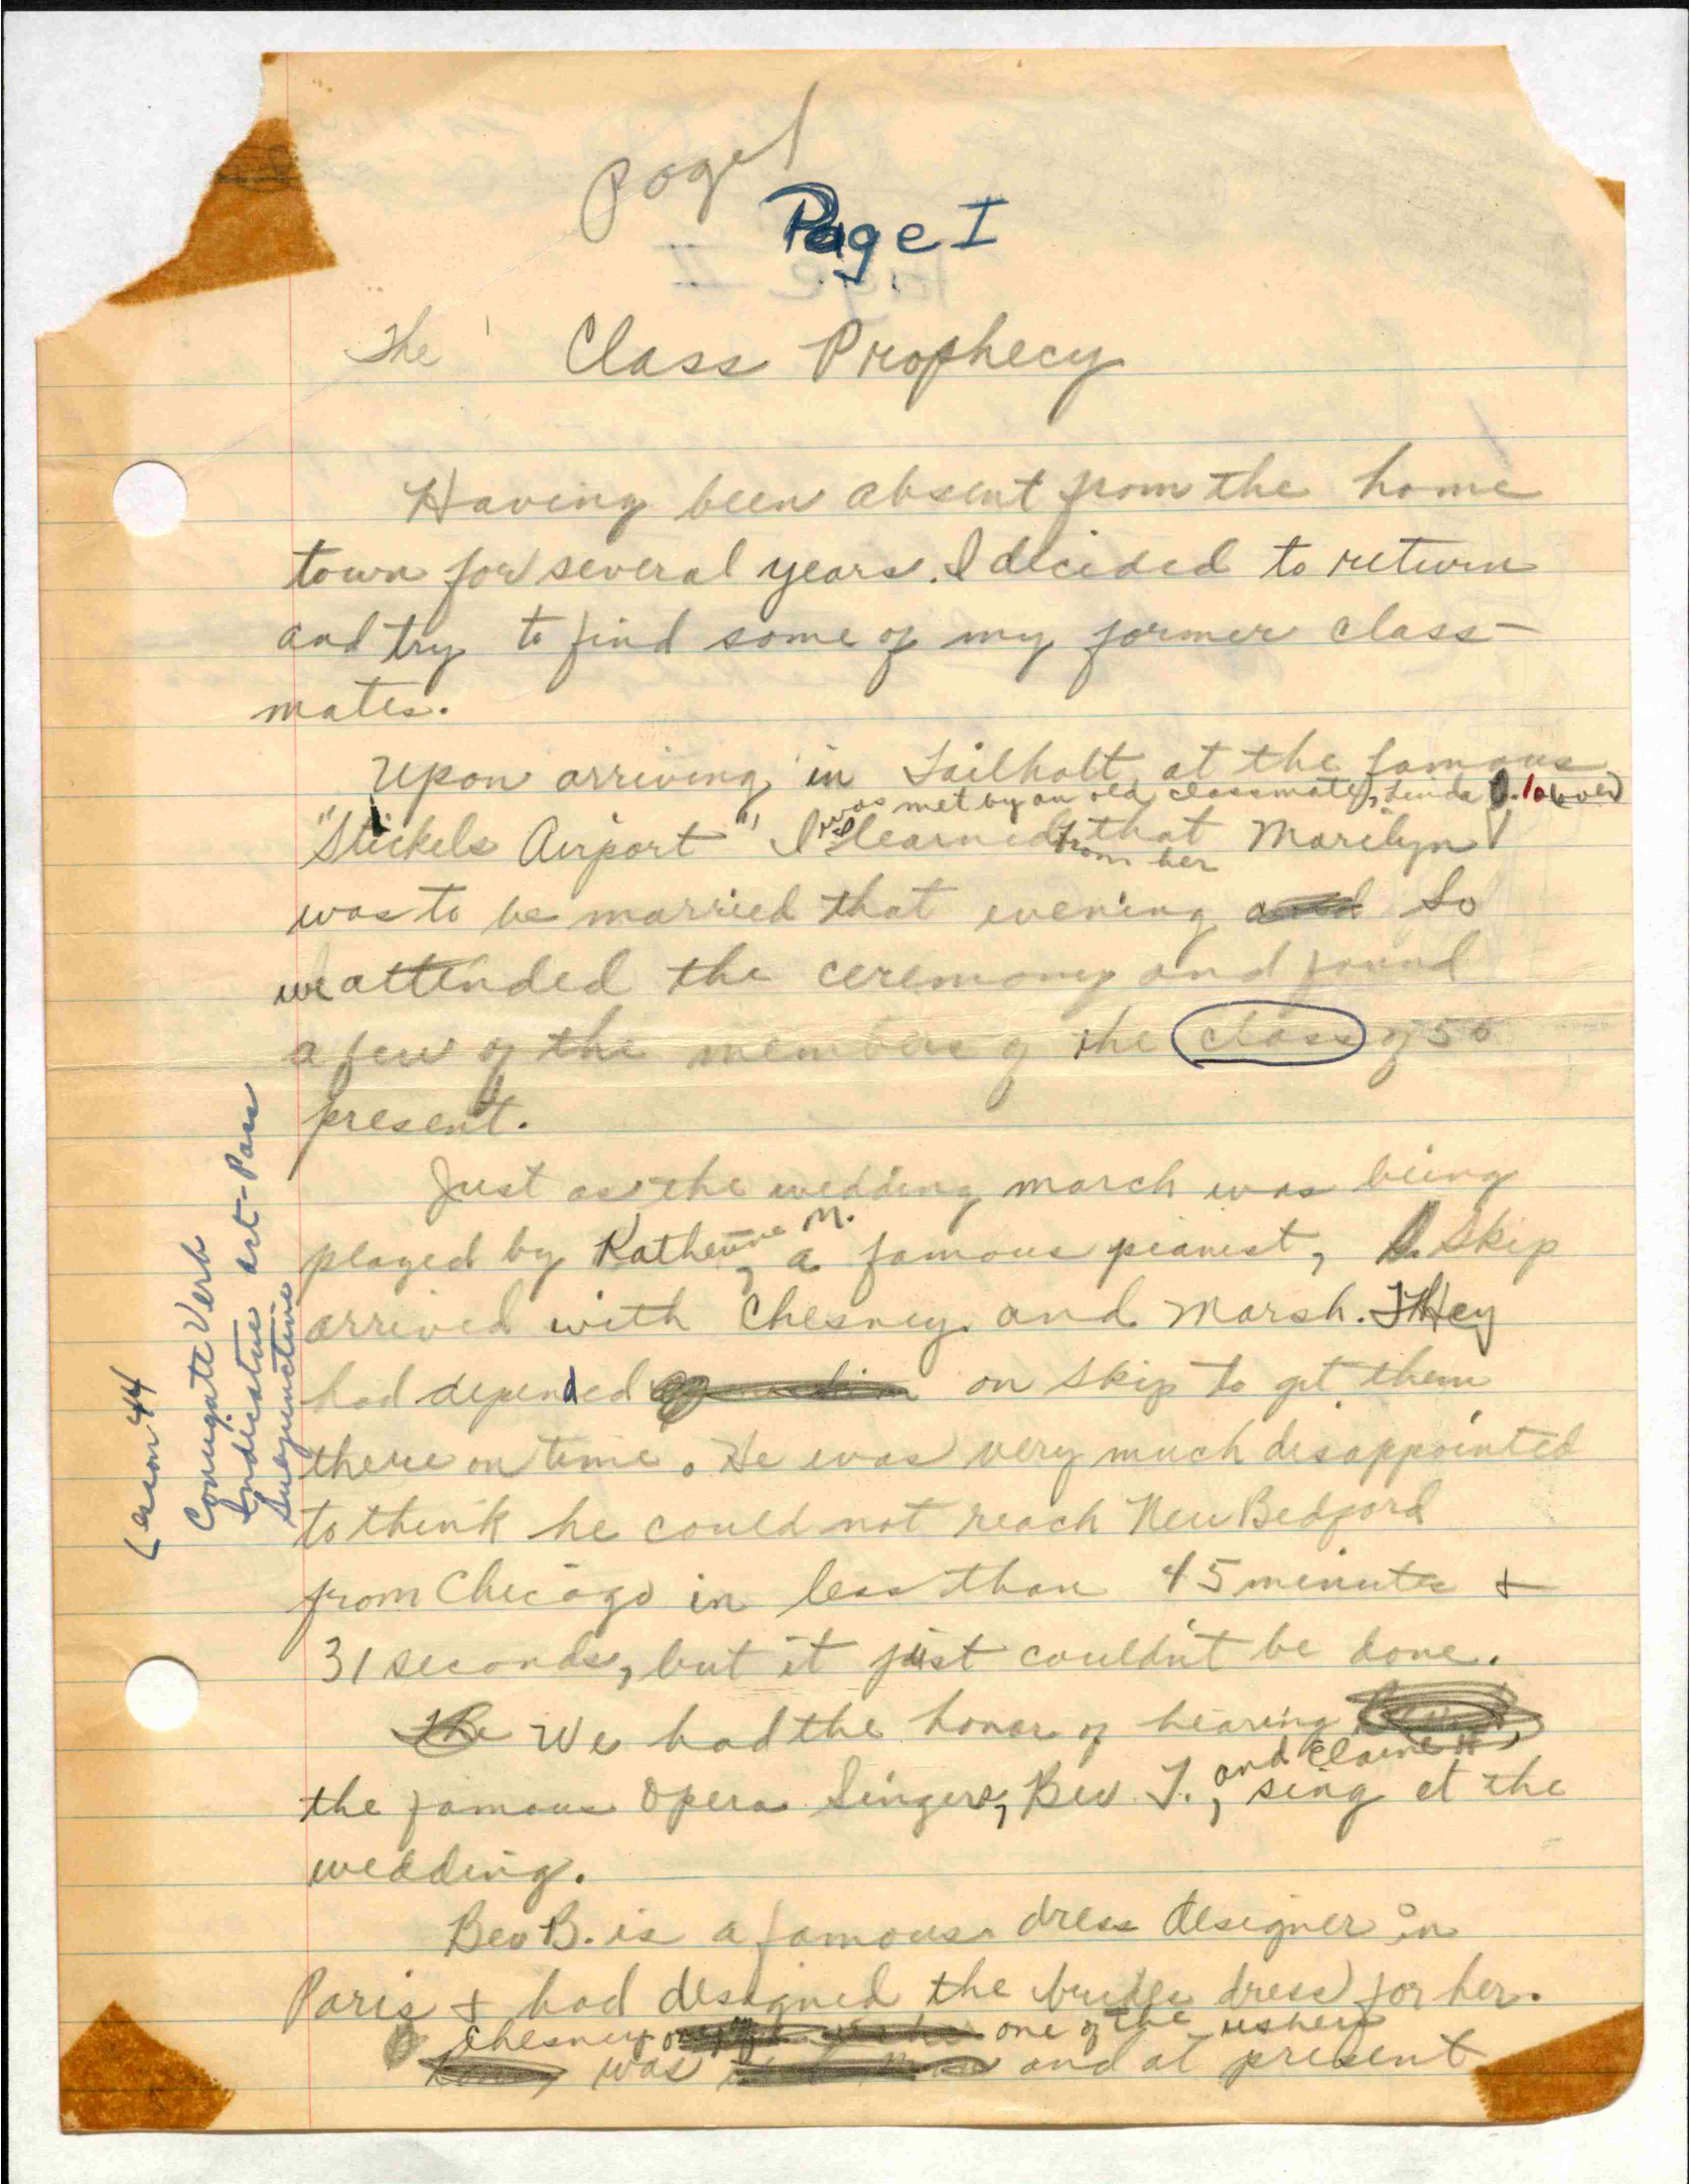 page 1
Page I
The Class Prophecy
Having been absent from the home
town for several years. I decided to return
and try to find some of my former class-
mates.
Upon arriving in Tailholt, at the famous
was met by an old classmate, Linda
"Stickels Airport", I learned that Marilyn
from her
was to be married that evening and So
we attended the ceremony and found
a few of the members of the class of 50
present.
Just as the wedding march was being
played by Katherine M., a famous pianist, Skip
arrived with Chesney and Marsh. They
had depended on Skip to get them
there on time. He was very much disappointed
to think he could not reach New Bedford
from Chicago in less than 45 minutes +
31 seconds, but it just couldn't be done.
The We had the honor of hearing
and Elaine H
the famous Opera Singers, Bev. T., sing at the
wedding.
Bev B. is a famous dress designer in
Paris + had designed the brides dress for her.
Chesney one of the ushers
was and at present
Lesson 44
Conugate Verb
Indicative act-Pass
Subjunctive